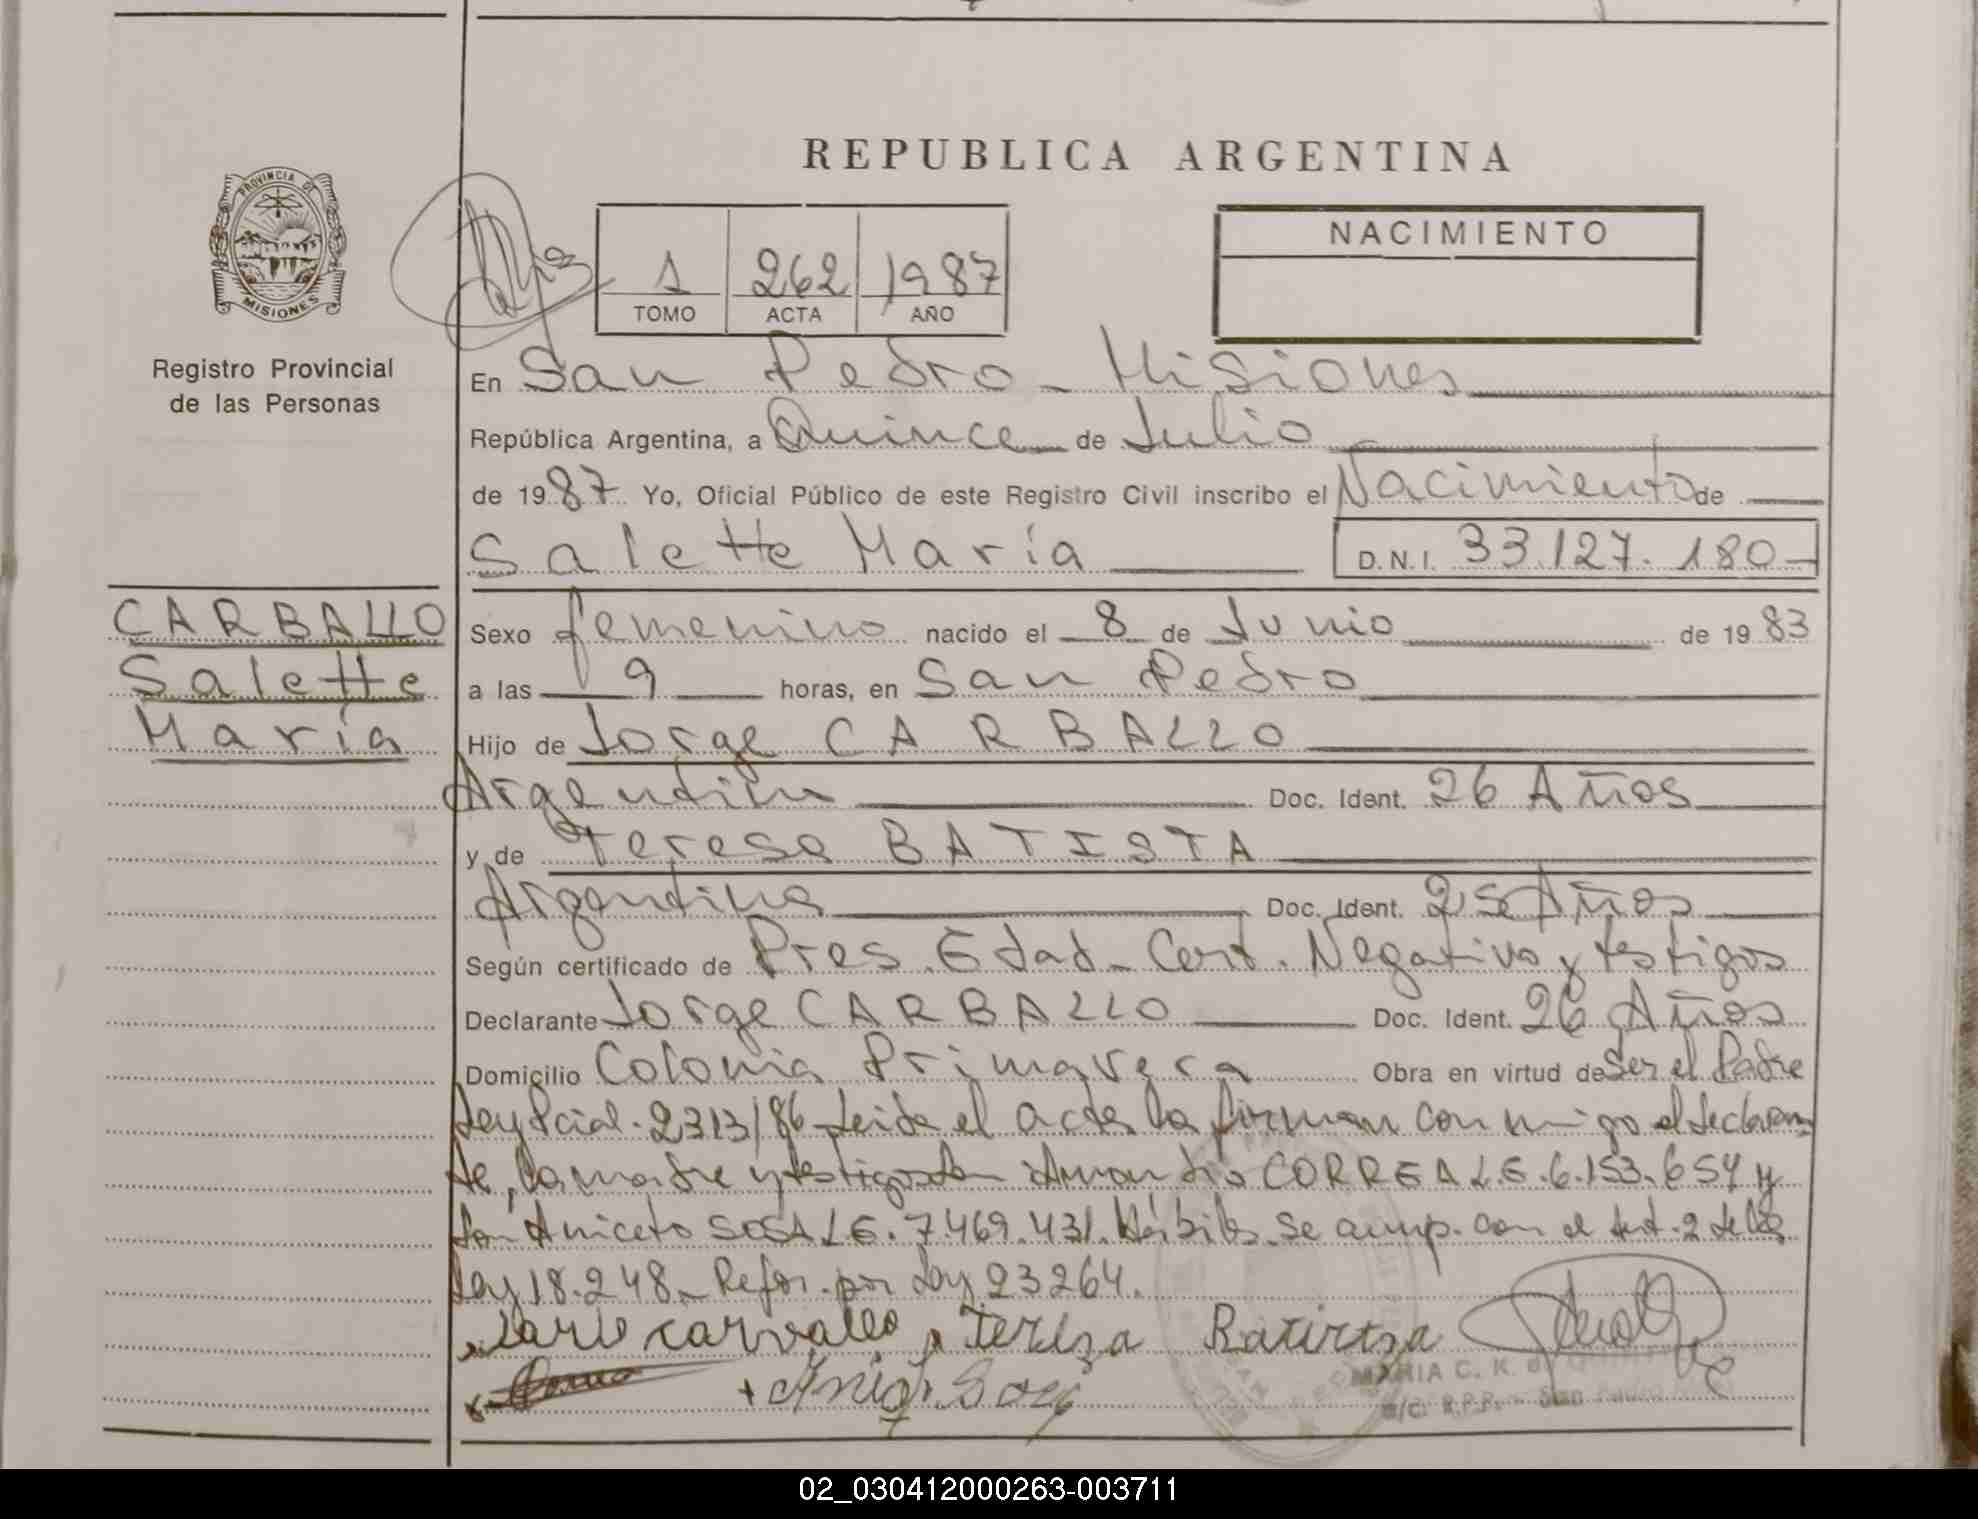 REPUBLICA ARGENTINA
PROVINCIA DE
MISIONES
Registro Provincial
de las Personas
1 262 1987
TOMO ACTA AÑO
NACIMIENTO
En San Pedro - Misiones
República Argentina, a Quince de Julio
de 1987 Yo, Oficial Público de este Registro Civil inscribo el Nacimiento de
Salette María D.N.I. 33.127.180-
CARBALLO
Salette
María
Sexo femenino nacido el 8 de Junio de 1983
a las 9 horas, en San Pedro
Hijo de Jorge CARBALLO
Argentina Doc. Ident. 26 Años
y de Teresa BATISTA
Argentina Doc. Ident. 25 Años
Según certificado de Pres. Edad - Cert. Negativo y testigos
Declarante Jorge CARBALLO Doc. Ident. 26 Años
Domicilio Colonia Primavera Obra en virtud de Ser el Padre
Ley Pcial. 2313/86 Leida el acta la firman con migo el declaran
te, la madre y testigos CORREA L.E. 6.153.654 y
don Aniceto SOSA L.E. 7.469.431. Hábiles. Se cump. con el Art. 2 de la
Ley 18.248 - Refor. por Ley 23264.
carvallo Tereza
MARIA C. K. de
R.P.P. - San Pedro
02_030412000263-003711